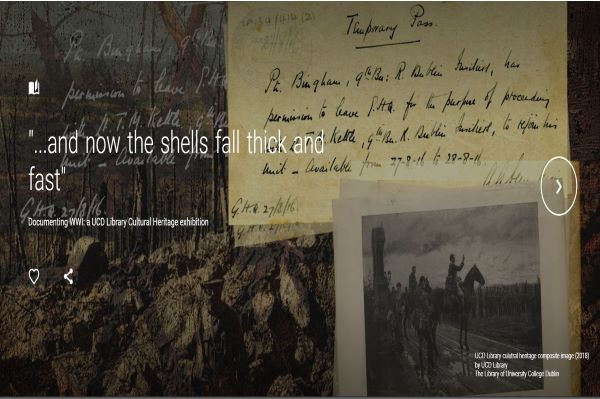 Temporary Pass.
Pte. Bingham, 9th Bn: R. Dublin Fusiliers, has
permission to leave G.H.Q. for the purpose of proceeding
T.M. Kettle, 9th Bn. R. Dublin Fusiliers, to rejoin his
Unit – Available from 27-8-16 to 28-8-16.
G.H.Q. 27/8/16.
"...and now the shells fall thick and
fast"
Documenting WWI: a UCD Library Cultural Heritage exhibition
UCD Library culutral heritage composite image (2018)
by UCD Library
The Library of University College Dublin